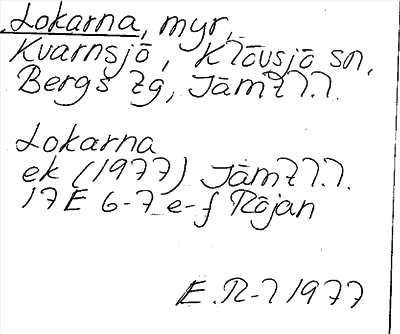 Lokarna, myr,
Kvarnsjö, Klövsjö sn,
Bergs tg, Jämtl.
Lokarna
ek (1977) Jämtl.
17E 6-7 e-f Röjan
E.R-l 1977